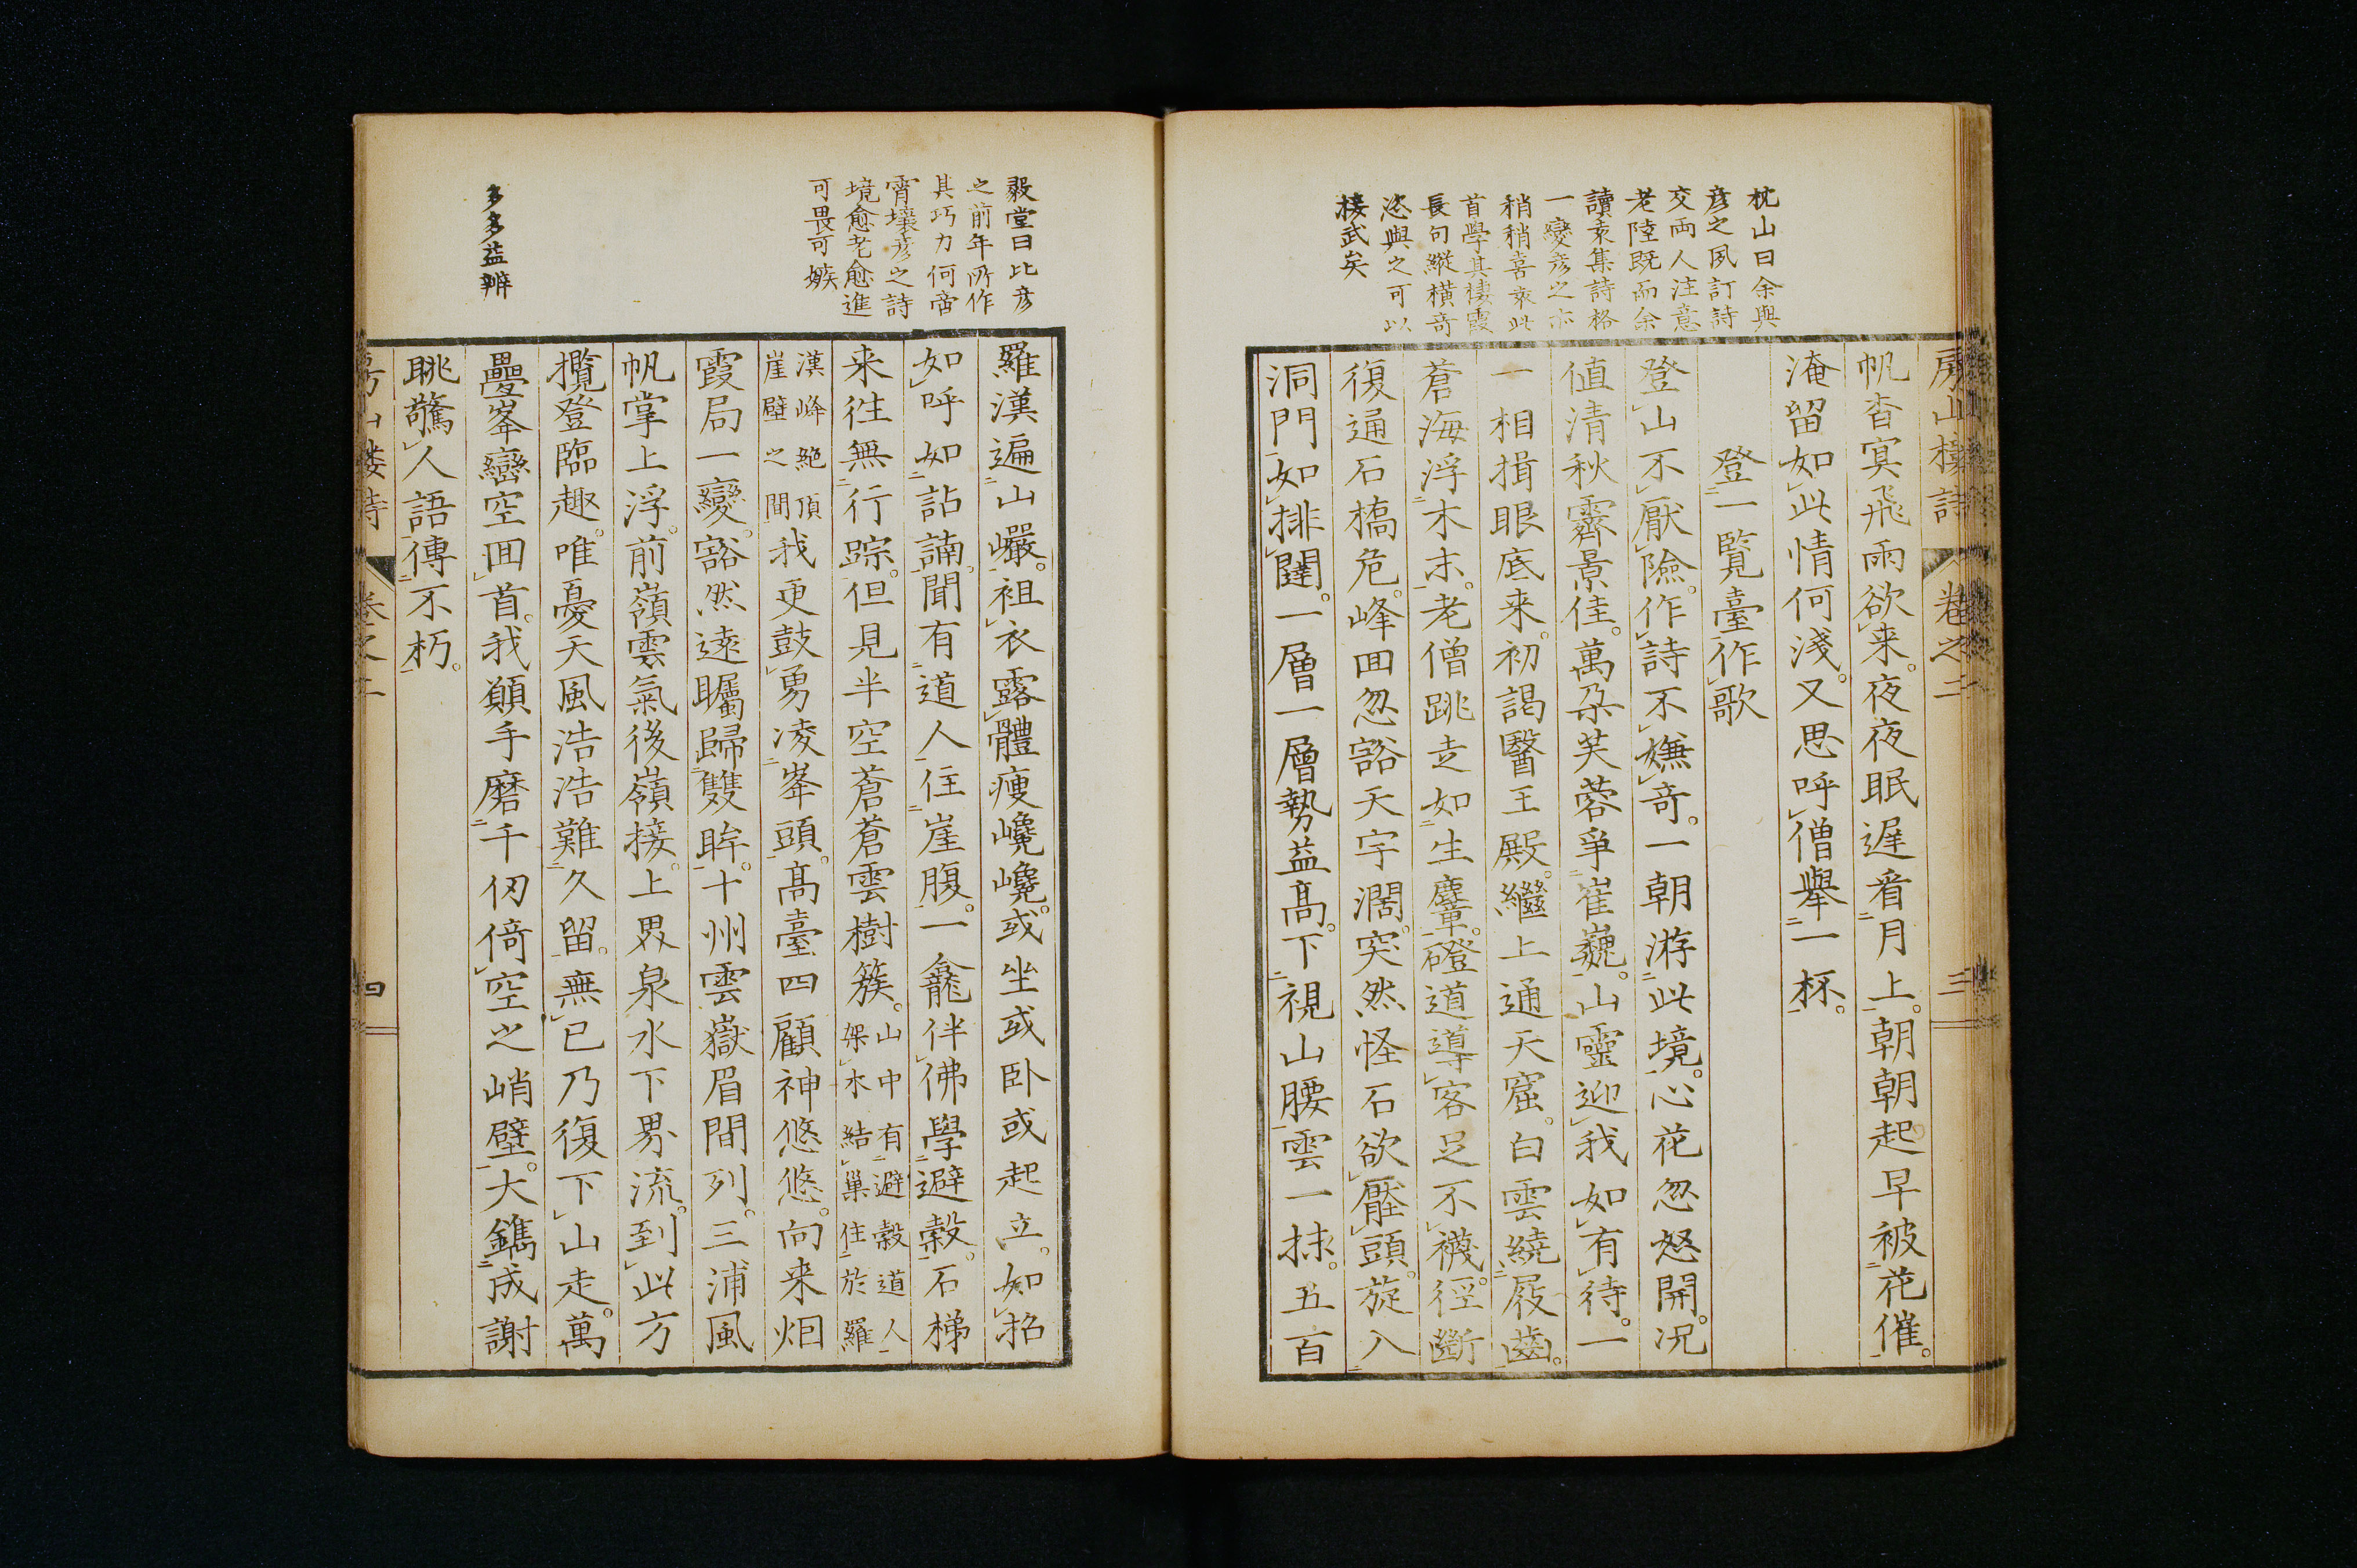 房山樓詩 卷之二 三
枕山曰余與
彦之夙訂詩
交兩人注意
老陸既而余
讀袁集詩格
一變彦之亦
稍稍喜袁此
首學其棲霞
長句縱横奇
恣與之可以
接武矣
帆杳冥飛雨欲来。夜夜眠遲看月上。朝朝起早被花催。
淹留如此情何淺。又思呼僧舉一杯。
登一覽臺作歌
登山不厭險。作詩不嫌奇。一朝游此境。心花忽怒開。况
値清秋霽景佳。萬朶芙蓉爭崔巍。山靈迎我如有待。一
一相揖眼底来。初謁醫王殿。繼上通天窟。白雲繞屐齒。
蒼海浮木末。老僧跳走如生麞。磴道導客足不襪。徑斷
復通石橋危。峰回忽豁天宇濶。突然怪石欲壓頭。旋入
洞門如排闥。一層一層勢益高。下視山腰雲一抹。五百
毅堂曰比彦
之前年所作
其巧力何啻
霄壤彦之詩
境愈老愈進
可畏可嫉
多多益辨
羅漢遍山巖。袒衣露體瘦巉巉。或坐或卧或起立。如招
如呼如詀諵。聞有道人住崖腹。一龕伴佛學避穀。石梯
来往無行踪。但見半空蒼蒼雲樹簇。山中有避穀道人
架木結巢住於羅
漢峰絶頂
崖壁之間我更鼓勇凌峯頭。高臺四顧神悠悠。向来烟
霞局一變。豁然遠矚歸雙眸。十州雲嶽眉間列。三浦風
帆掌上浮。前嶺雲氣後嶺接。上界泉水下界流。到此方
攬登臨趣。唯憂天風浩浩難久留。無已乃復下山走。萬
疊峯巒空回首。我願手磨千仞倚空之峭壁。大鐫成謝
眺驚人語傳不朽。
房山樓詩 卷之二 四